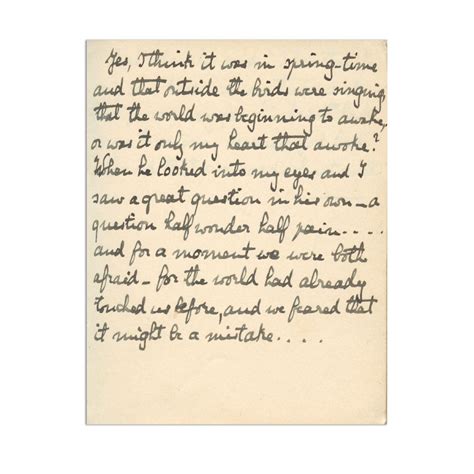 Yes, I think it was in spring-time
and that outside the birds were singing,
that the world was beginning to awake,
or was it only my heart that awoke?
When he looked into my eyes and I
saw a great question in his own – a
question half wonder half pain. . . . .
and for a moment we were both
afraid – for the world had already
touched us before, and we feared that
it might be a mistake. . . . .